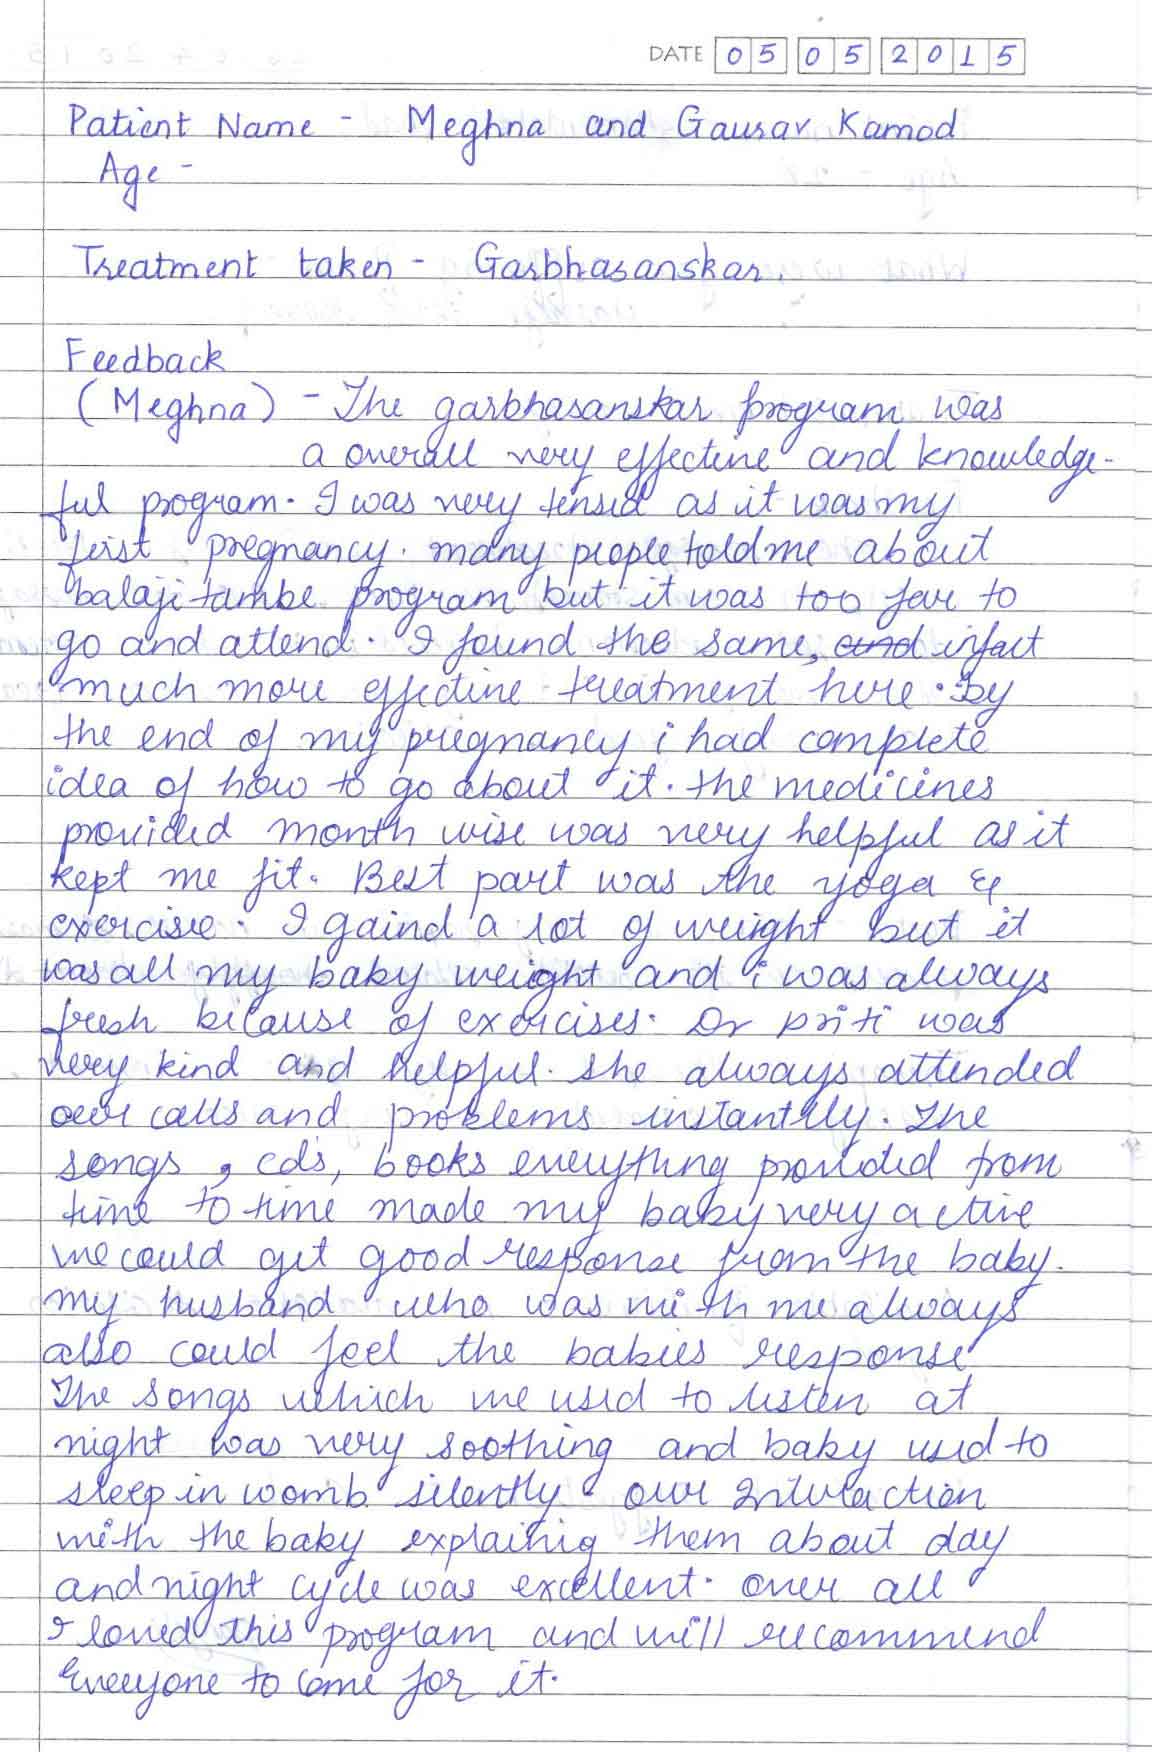 DATE 05 05 2015
Patient Name - Meghna and Gaurav Kamod
Age -
Treatment taken - Garbhasanskar.
Feedback
(Meghna) - The garbhasanskar program was
a overall very effective and knowledge-
ful program. I was very tensed as it was my
first pregnancy. many people told me about
balaji tambe program but it was too far to
go and attend. I found the same, and infact
much more effective treatment here. By
the end of my pregnancy i had complete
idea of how to go about it. the medicines
provided month wise was very helpful as it
kept me fit. Best part was the yoga &
exercise. I gaind a lot of weight but it
was all my baby weight and i was always
fresh because of exercises. Dr priti was
very kind and helpful. she always attended
our calls and problems instantly. The
songs, cds, books everything provided from
time to time made my baby very active
we could get good response from the baby.
my husband who was with me always
also could feel the babies response
The songs which we used to listen at
night was very soothing and baby used to
sleep in womb silently. our Interaction
with the baby explainig them about day
and night cycle was excellent. over all
I loved this program and will recommend
Everyone to come for it.